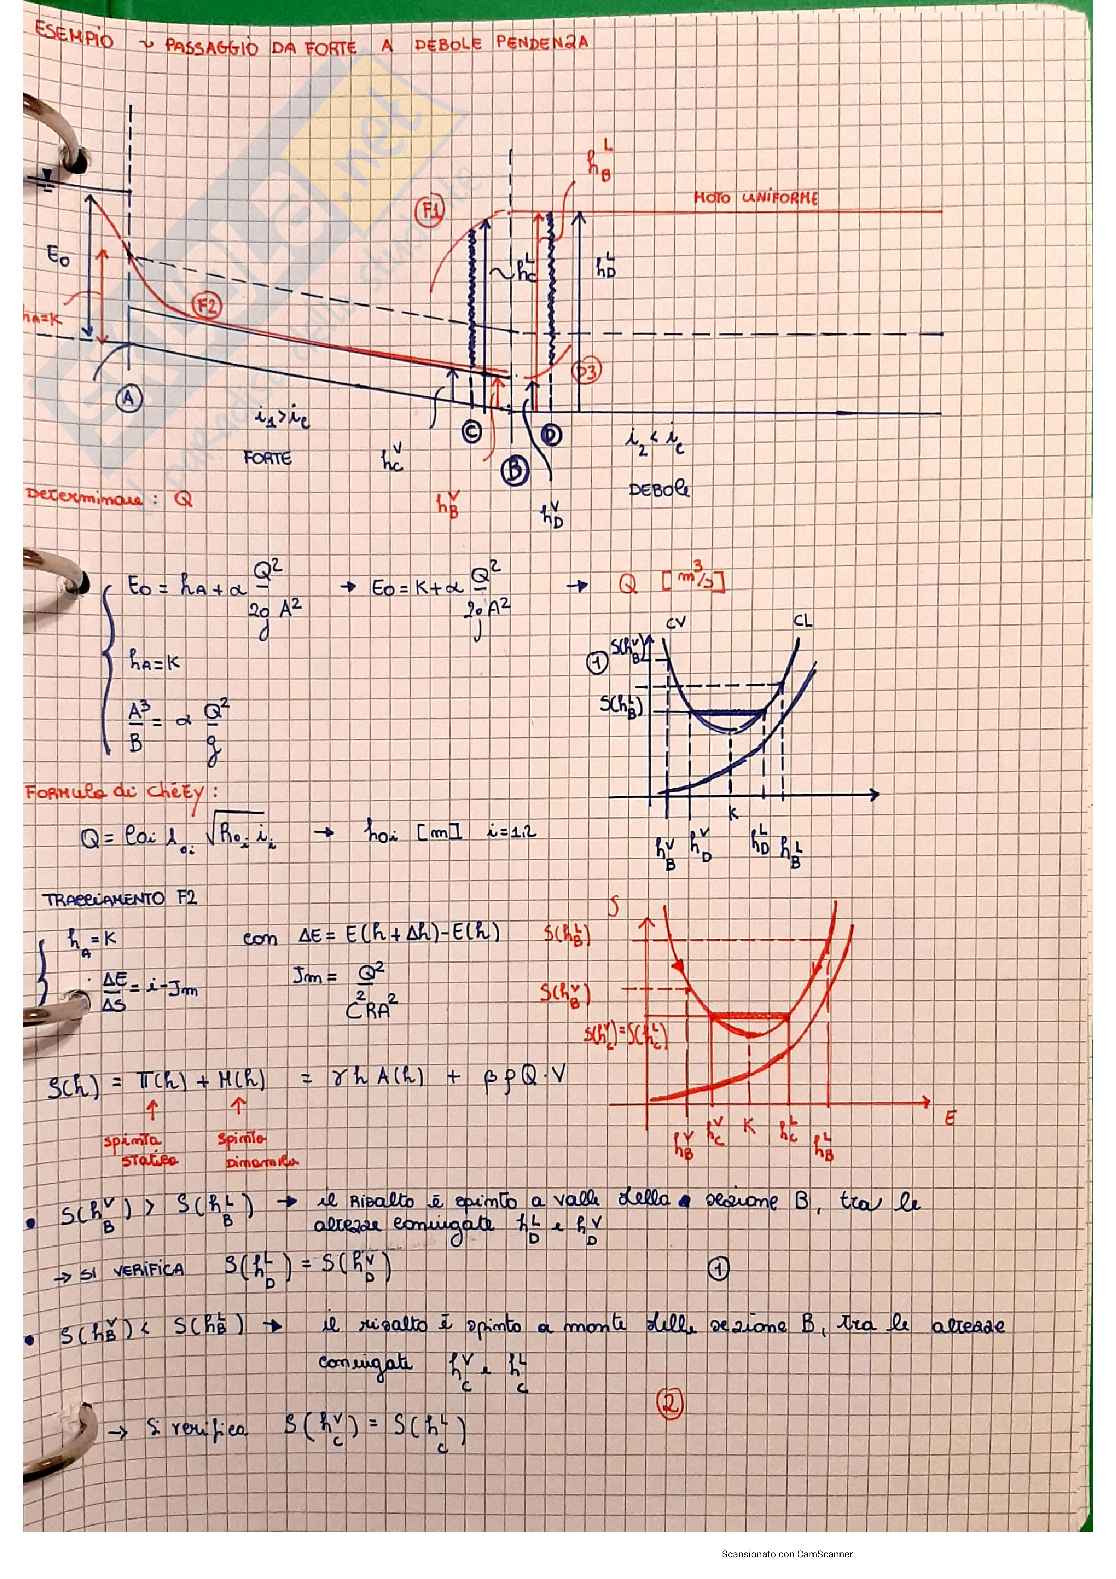 ESEMPIO ~ PASSAGGIO DA FORTE A DEBOLE PENDENZA
h_B^L
F1
MOTO UNIFORME
E0
~h_C^L
h_D^L
F2
hA=K
P3
A
i1>ic
C
D
B
i2<ic
FORTE
h_C^V
DEBOLE
Determinare: Q
h_B^V
h_D^V
E0 = hA + α Q²/2gA² → E0 = K + α Q²/2gA² → Q [m³/s]
hA=K
A³/B = α Q²/g
CV
CL
1
S(h_B^V)
S(h_B^L)
K
h_B^V
h_D^V
h_D^L
h_B^L
FORMULA di ChéEy:
Q = C0i A0i √R0i ii → h0i [m] i=1,2
TRACCIAMENTO F2
hA=K
con ΔE = E(h+Δh)-E(h)
ΔE/ΔS = i-Jm
Jm = Q²/C²RA²
S
S(h_B^L)
S(h_B^V)
S(h_C^V)=S(h_C^L)
E
h_B^V
h_C^V
K
h_C^L
h_B^L
S(h) = Π(h) + M(h) = γhA(h) + βρQ·V
↑ ↑
spinta statica
spinta dinamica
• S(h_B^V) > S(h_B^L) → il risalto è spinto a valle della sezione B, tra le
altezze coniugate h_D^L e h_D^V
→ SI VERIFICA S(h_D^L) = S(h_D^V)
1
• S(h_B^V) < S(h_B^L) → il risalto è spinto a monte della sezione B, tra le altezze
coniugate h_C^V e h_C^L
2
→ Si verifica S(h_C^V) = S(h_C^L)
Scansionato con CamScanner